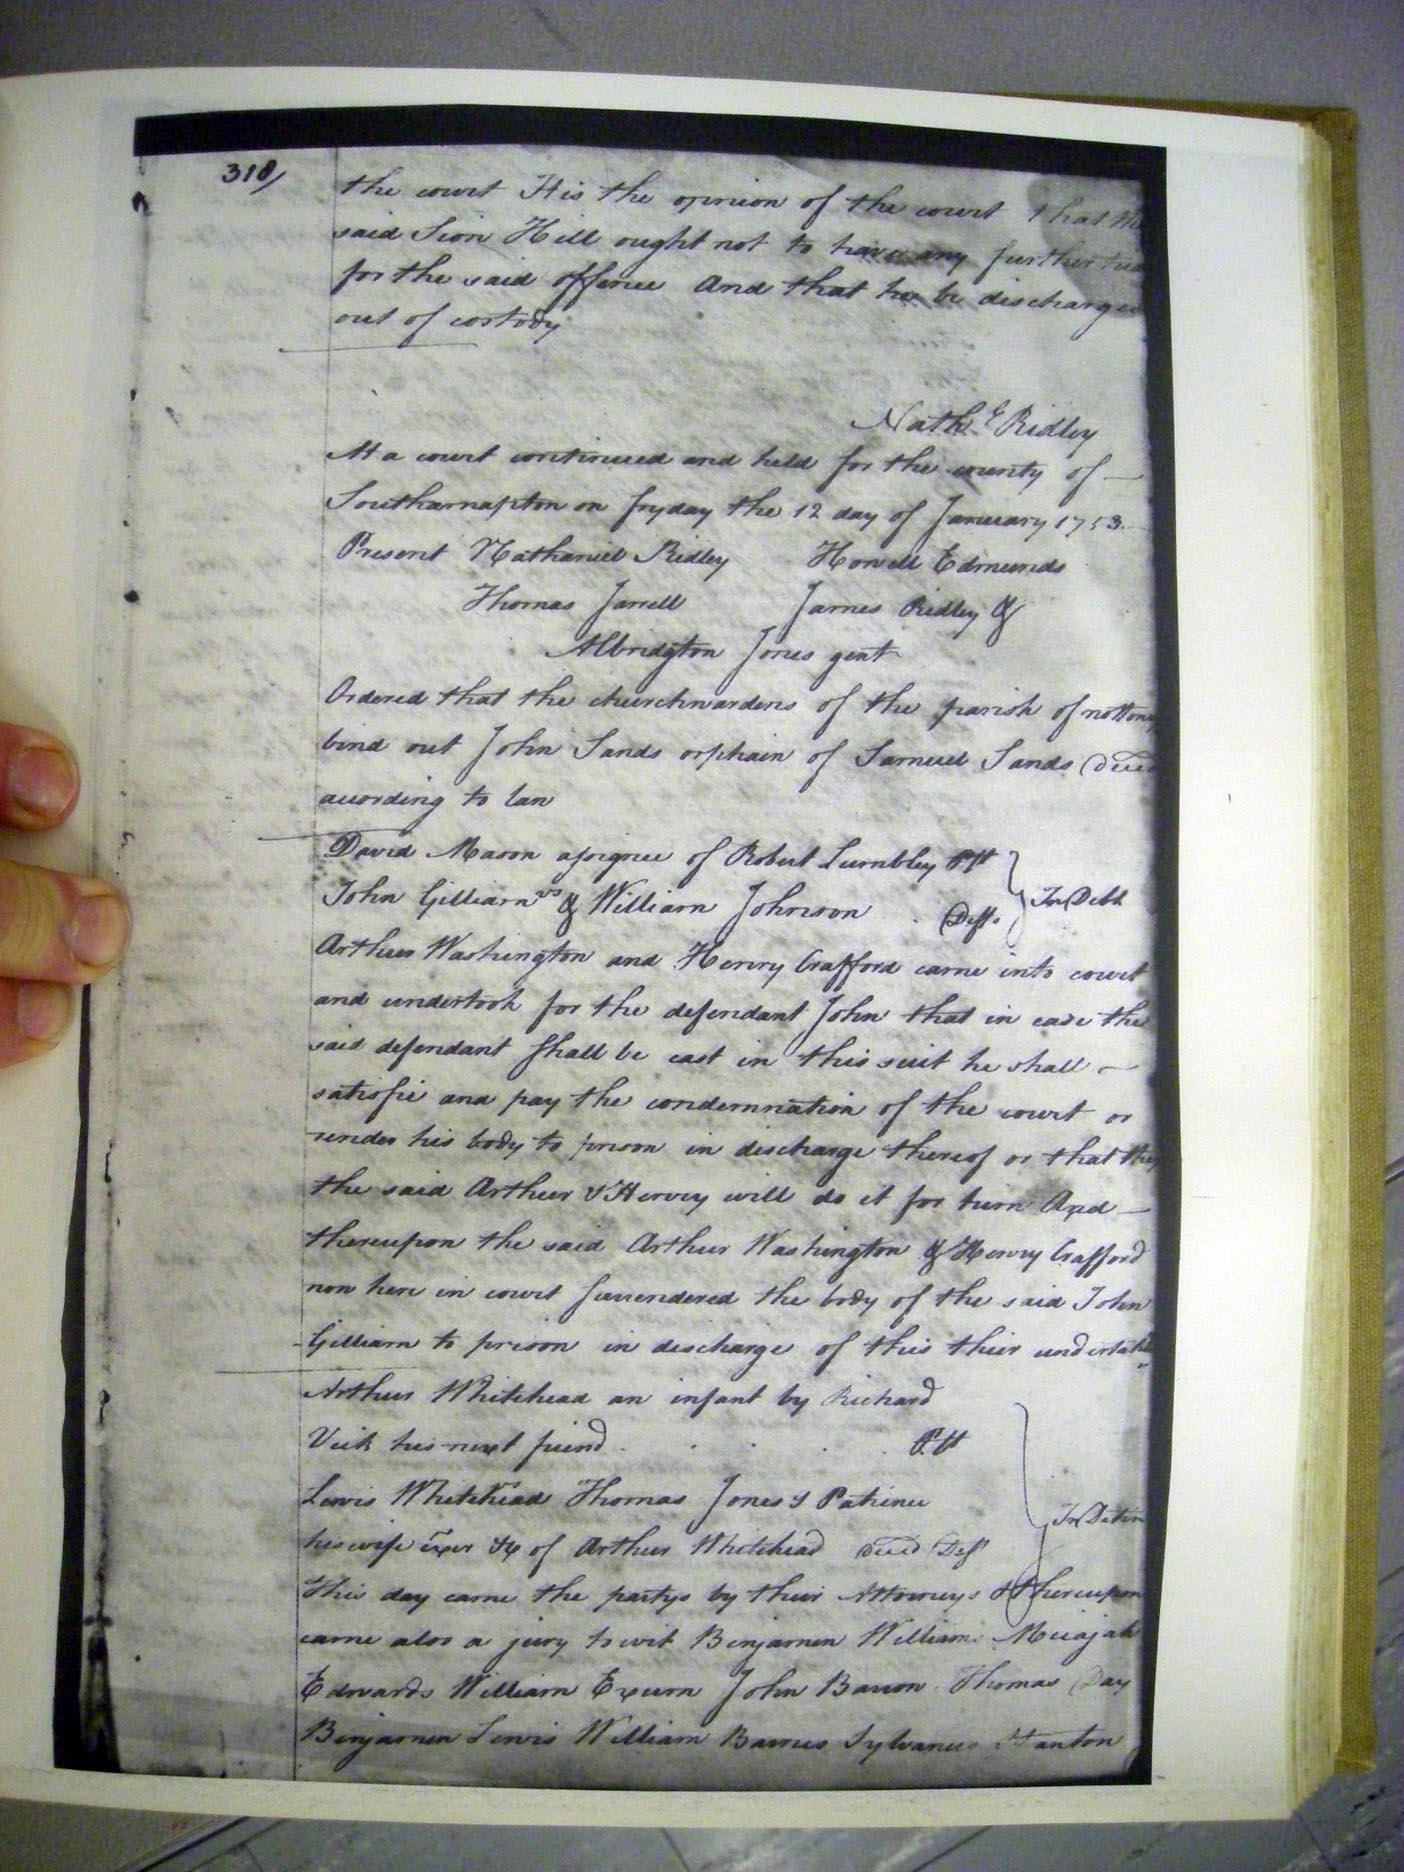 318/
the court It is the opinion of the court that the
said Sion Hill ought not to have any further
for the said offence And that he be discharged
out of costody
Nath.ˡ Ridley
At a court continued and held for the county of —
Southamapton on fryday the 12 day of January 1753.
Present Nathaniel Ridley Howell Edmunds
Thomas Jarrell James Ridley &
Albridgton Jones gent
Ordered that the churchwardens of the parish of
bind out John Sands orphain of Samuel Sands
according to law
David Mason assignee of Robert Lumbley Plt
vs
John Gilliam & William Johnson Defts
In Debt
Arthur Washington and Henry Crafford came into court
and undertook for the defendant John that in case the
said defendant shall be cast in this suit he shall —
satisfie and pay the condemnation of the court or
render his body to prison in discharge thereof or that they
the said Arthur & Henry will do it for him And —
thereupon the said Arthur Washington & Henry Crafford
now here in court surrendered the body of the said John
Gilliam to prison in discharge of this their
Arthur Whitehead an infant by Richard
Vick his next friend Plt
vs
Lewis Whitehead Thomas Jones & Patience
his wife Exor &c of Arthur Whitehead Decd Def
In
This day came the partys by their Attorneys & thereupon
came also a jury towit Benjamin Williams Micajah
Edwards William Exum John Barron Thomas Day
Benjamen Lewis William Barnes Sylvanus Stanton